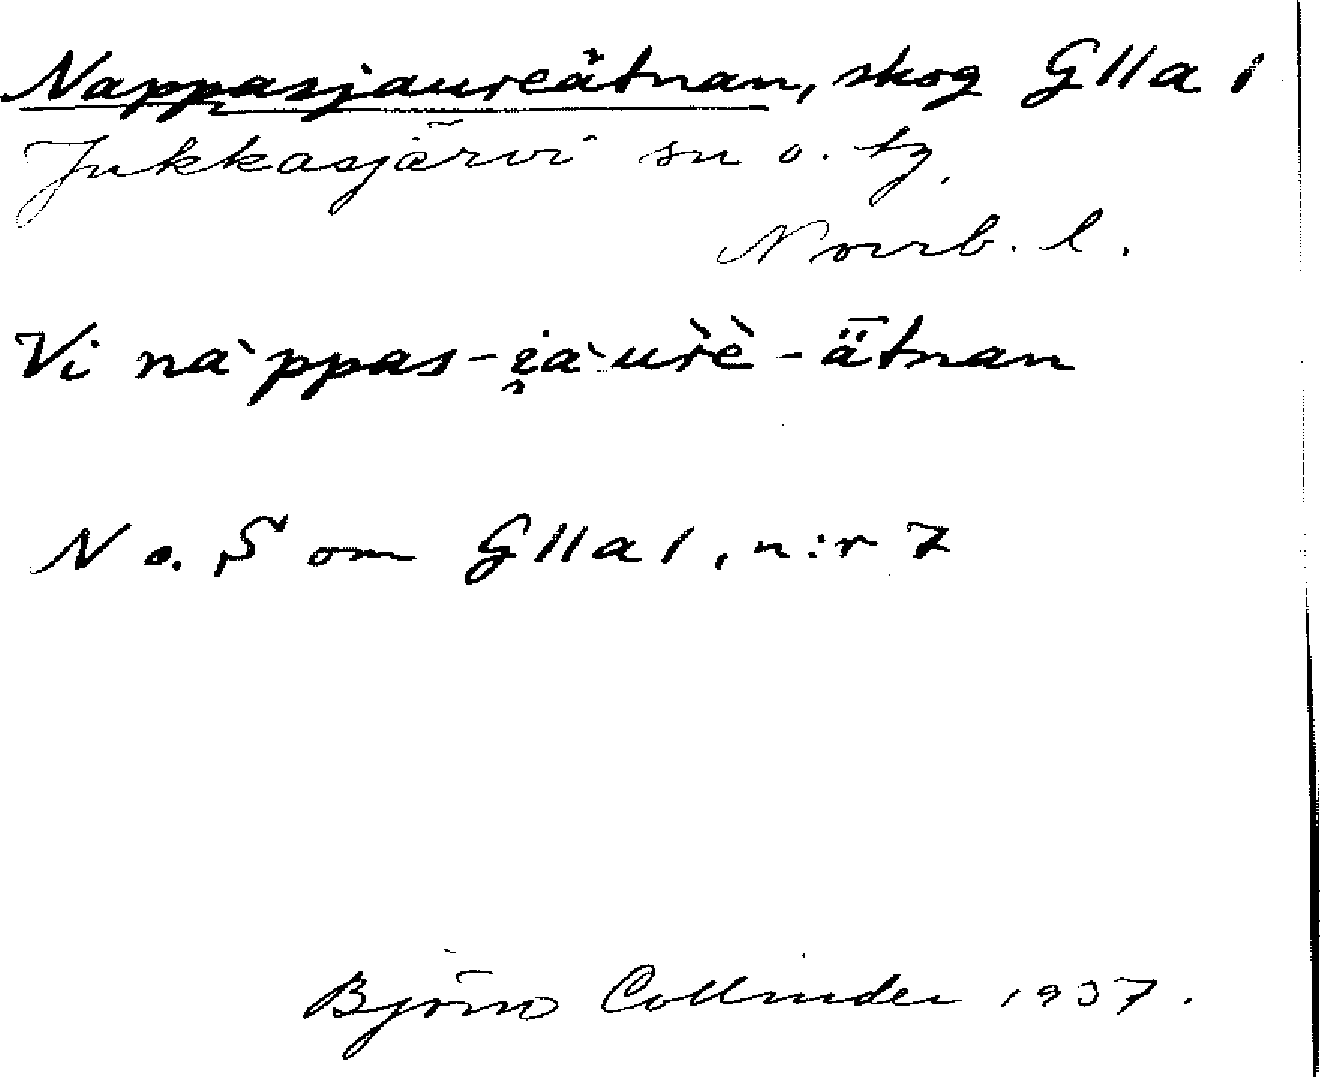 Nappasjaureätnan, skog G11a1
Jukkasjärvi sn o. tg.
Norrb. l.
Vi nàppas-i̯àu̇rè-ǟtnan
N o. S om G11a1, n:r 7
Björn Collinder 1937.